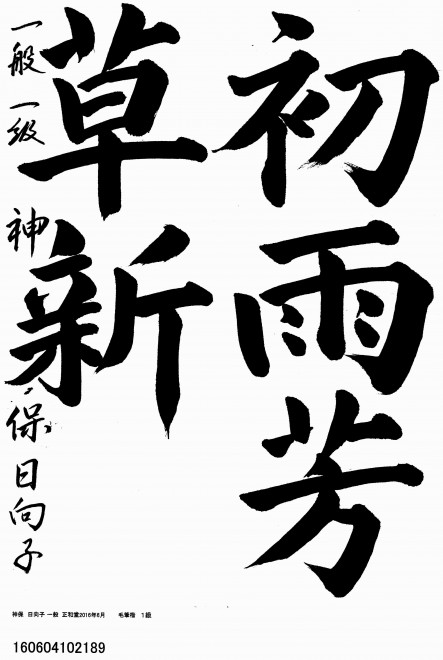 初雨芳
草新
一般 一級 神保 日向子
神保 日向子 一般 正和堂2016年6月 毛筆楷 1級
160604102189